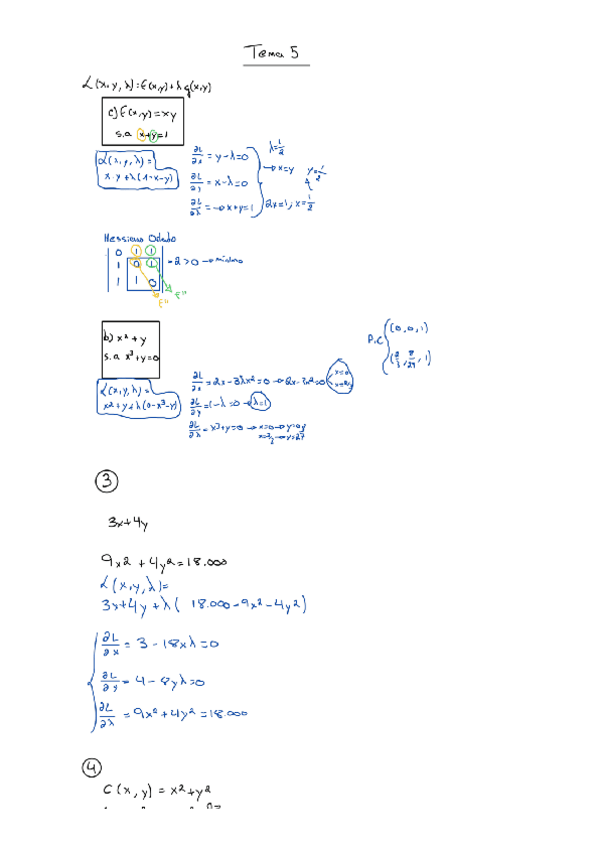 Tema 5
L(x, y, λ) = f(x,y) + λ g(x,y)
c) f(x,y) = xy
s.a x+y=1
L(x, y, λ) =
x·y + λ(1-x-y)
∂L/∂x = y-λ=0
∂L/∂y = x-λ=0
∂L/∂λ = → x+y=1
λ=1/2
→ x=y
y=1/2
2x=1; x=1/2
Hessiano Orlado
0 1 1
1 0 1
1 1 0
= 2 > 0 → mínimo
f''
f''
b) x² + y
s.a x³+y=0
L(x,y,λ) =
x²+y+λ(0-x³-y)
∂L/∂x = 2x-3λx²=0 → 2x-3x²=0
x=0
∂L/∂y = 1-λ=0 → λ=1
∂L/∂λ = x³+y=0 → x=0 → y=0
P.C
(0,0,1)
3
3x+4y
9x² + 4y² = 18.000
L(x,y,λ)=
3x+4y+λ( 18.000-9x²-4y²)
∂L/∂x = 3 - 18xλ=0
∂L/∂y = 4-8yλ=0
∂L/∂λ = 9x²+4y²=18.000
4
C(x, y) = x²+y²